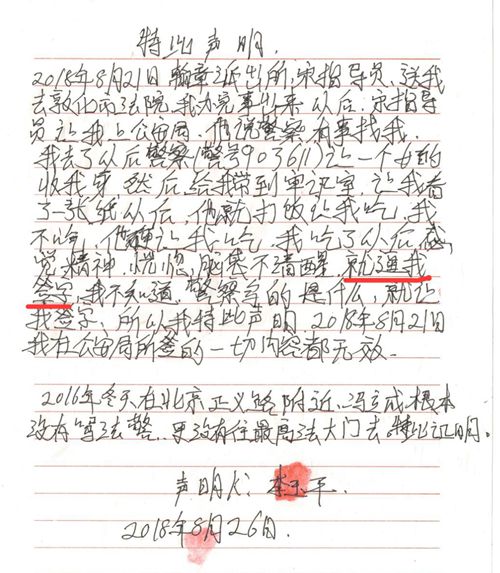 特此声明.
2018年8月21日 翰章派出所,宋指导员,送我
去敦化市法院,我办完事出来以后,宋指导
员让我上公安局,他说警察有事找我.
我去了以后警察(警号903611)让一个女的
收我身,然后,给我带到审讯室,让我看
了一张纸以后,他就打饭让我吃,我
不吃,他让我吃,我吃了以后感
觉精神,恍惚,脑袋不清醒,就逼我
签字,我不知道,警察写的是什么,就让
我签字,所以我特此声明,2018年8月21日
我在公安局所签的一切内容都无效.
2016年冬天在北京正义路附近,冯立成根本
没有骂法警,更没有往最高法大门去.特此证明.
声明人:李玉平.
2018年8月26日.